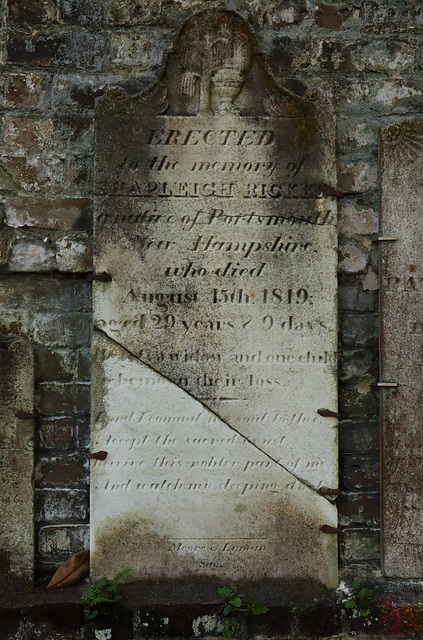 ERECTED
to the memory of
SHAPLEIGH RICKER
a native of Portsmouth
New Hampshire,
who died
August 15th, 1819;
aged 29 years & 9 days.
a widow and one child
to bemoan their loss.
Lord I commit my soul to thee,
Accept the sacred trust,
Receive this nobler part of me
And watch my sleeping dust.
Moore & Lyman
PA